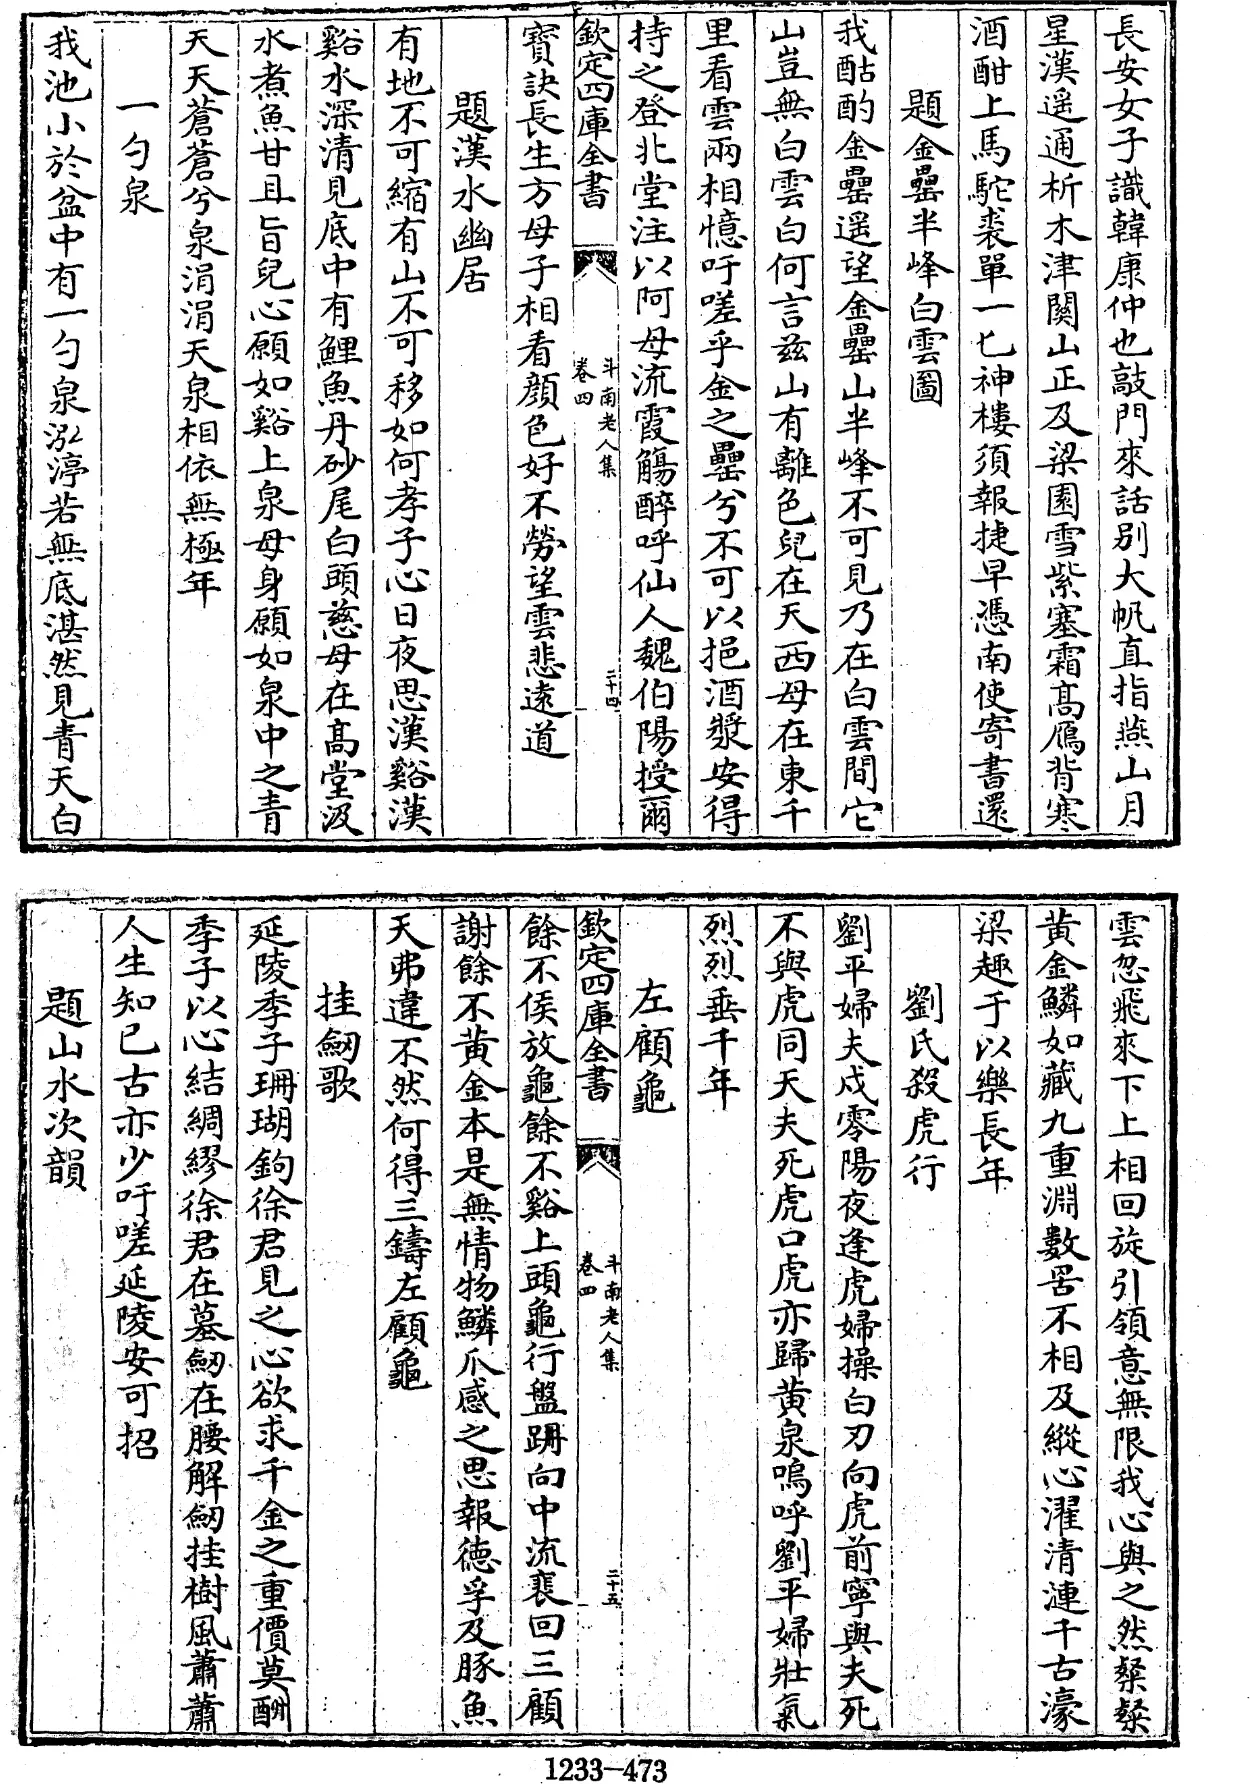 長安女子識韓康仲也敲門來話别大帆直指燕山月
星漢遥通析木津關山正及梁園雪紫塞霜髙鴈背寒
酒酣上馬駝裘單一匕神樓須報捷早憑南使寄書還
題金罍半峰白雲圖
我酤酌金罍遥望金罍山半峰不可見乃在白雲間它
山豈無白雲白何言兹山有離色兒在天西母在東千
里看雲兩相憶吁嗟乎金之罍兮不可以挹酒漿安得
持之登北堂注以阿母流霞觴醉呼仙人魏伯陽授爾
欽定四庫全書
斗南老人集
卷四
二十四
寶訣長生方母子相看顔色好不勞望雲悲遠道
題漢水幽居
有地不可縮有山不可移如何孝子心日夜思漢谿漢
谿水深清見底中有鯉魚丹砂尾白頭慈母在髙堂汲
水煮魚甘且旨兒心願如谿上泉母身願如泉中之青
天天蒼蒼兮泉涓涓天泉相依無極年
一勺泉
我池小於盆中有一勺泉泓渟若無底湛然見青天白
雲忽飛來下上相回旋引領意無限我心與之然粲粲
黄金鱗如藏九重淵數罟不相及縱心濯清漣千古濠
梁趣于以樂長年
劉氏殺虎行
劉平婦夫戍零陽夜逢虎婦操白刃向虎前寧與夫死
不與虎同天夫死虎口虎亦歸黄泉嗚呼劉平婦壯氣
烈烈垂千年
左顧龜
欽定四庫全書
斗南老人集
卷四
二十五
餘不侯放龜餘不谿上頭龜行盤跚向中流裵回三顧
謝餘不黄金本是無情物鱗爪感之思報德孚及豚魚
天弗違不然何得三鑄左顧龜
挂劒歌
延陵季子珊瑚鉤徐君見之心欲求千金之重價莫酬
季子以心結綢繆徐君在墓劒在腰解劒挂樹風蕭蕭
人生知已古亦少吁嗟延陵安可招
題山水次韻
1233-473